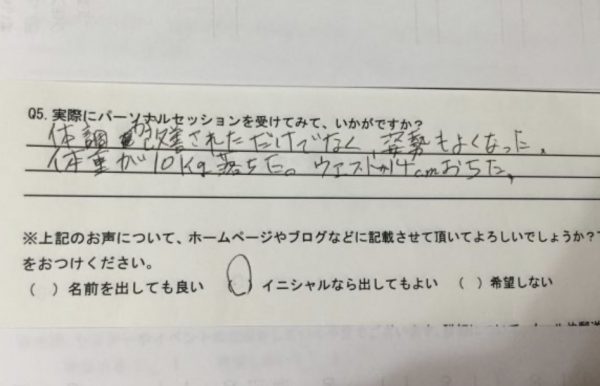 Q5.実際にパーソナルセッションを受けてみて、いかがですか？
体調が改善されただけでなく、姿勢もよくなった。
体重が10Kg落ちた。ウエストが4cmおちた。
※上記のお声について、ホームページやブログなどに記載させて頂いてよろしいでしょうか？
をおつけください。
( ) 名前を出しても良い ( ) イニシャルなら出してもよい ( ) 希望しない